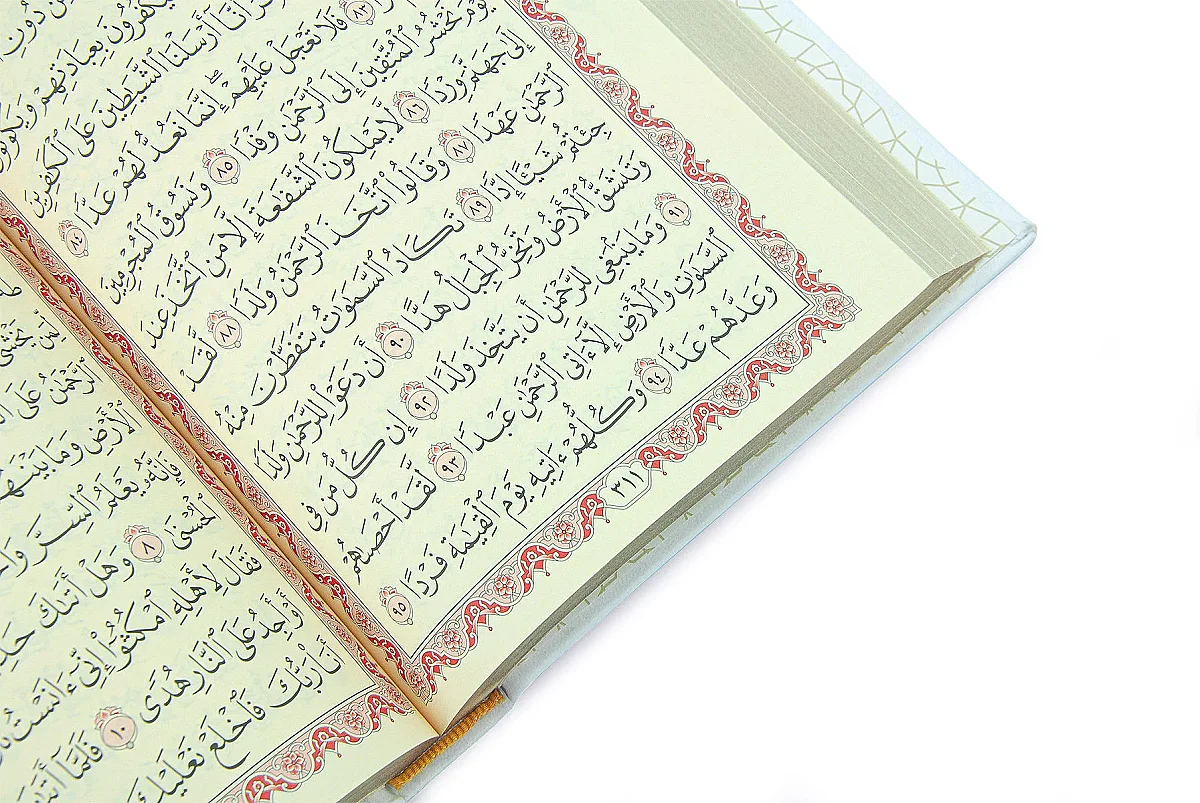 ن دُونِ
يَكْفُرُونَ بِعِبَادَتِهِمْ وَيَكُونُو
أَنَّآ أَرْسَلْنَا ٱلشَّيَٰطِينَ عَلَى ٱلْكَٰفِرِينَ
٨٣ فَلَا تَعْجَلْ عَلَيْهِمْ ۖ إِنَّمَا نَعُدُّ لَهُمْ عَدًّا ٨٤
يَوْمَ نَحْشُرُ ٱلْمُتَّقِينَ إِلَى ٱلرَّحْمَٰنِ وَفْدًا ٨٥ وَنَسُوقُ ٱلْمُجْرِمِينَ
إِلَىٰ جَهَنَّمَ وِرْدًا ٨٦ لَّا يَمْلِكُونَ ٱلشَّفَٰعَةَ إِلَّا مَنِ ٱتَّخَذَ عِندَ
ٱلرَّحْمَٰنِ عَهْدًا ٨٧ وَقَالُوا۟ ٱتَّخَذَ ٱلرَّحْمَٰنُ وَلَدًا ٨٨ لَّقَدْ
جِئْتُمْ شَيْـًٔا إِدًّا ٨٩ تَكَادُ ٱلسَّمَٰوَٰتُ يَتَفَطَّرْنَ مِنْهُ
وَتَنشَقُّ ٱلْأَرْضُ وَتَخِرُّ ٱلْجِبَالُ هَدًّا ٩٠ أَن دَعَوْا۟ لِلرَّحْمَٰنِ وَلَدًا
٩١ وَمَا يَنۢبَغِى لِلرَّحْمَٰنِ أَن يَتَّخِذَ وَلَدًا ٩٢ إِن كُلُّ مَن فِى
ٱلسَّمَٰوَٰتِ وَٱلْأَرْضِ إِلَّآ ءَاتِى ٱلرَّحْمَٰنِ عَبْدًا ٩٣ لَّقَدْ أَحْصَىٰهُمْ
وَعَدَّهُمْ عَدًّا ٩٤ وَكُلُّهُمْ ءَاتِيهِ يَوْمَ ٱلْقِيَٰمَةِ فَرْدًا ٩٥
٣١١
لِّمَن يَخْشَىٰ
ٱلرَّحْمَٰنُ عَلَى
ٱلْأَرْضِ وَمَا بَيْنَهُمَا
فَإِنَّهُۥ يَعْلَمُ ٱلسِّرَّ
ٱلْحُسْنَىٰ ٨ وَهَلْ أَتَىٰكَ
فَقَالَ لِأَهْلِهِ ٱمْكُثُوٓا۟ إِنِّىٓ ءَانَسْتُ
أَوْ أَجِدُ عَلَى ٱلنَّارِ هُدًى ١٠ فَلَمَّآ
أَنَا۠ رَبُّكَ فَٱخْلَعْ نَعْلَيْكَ